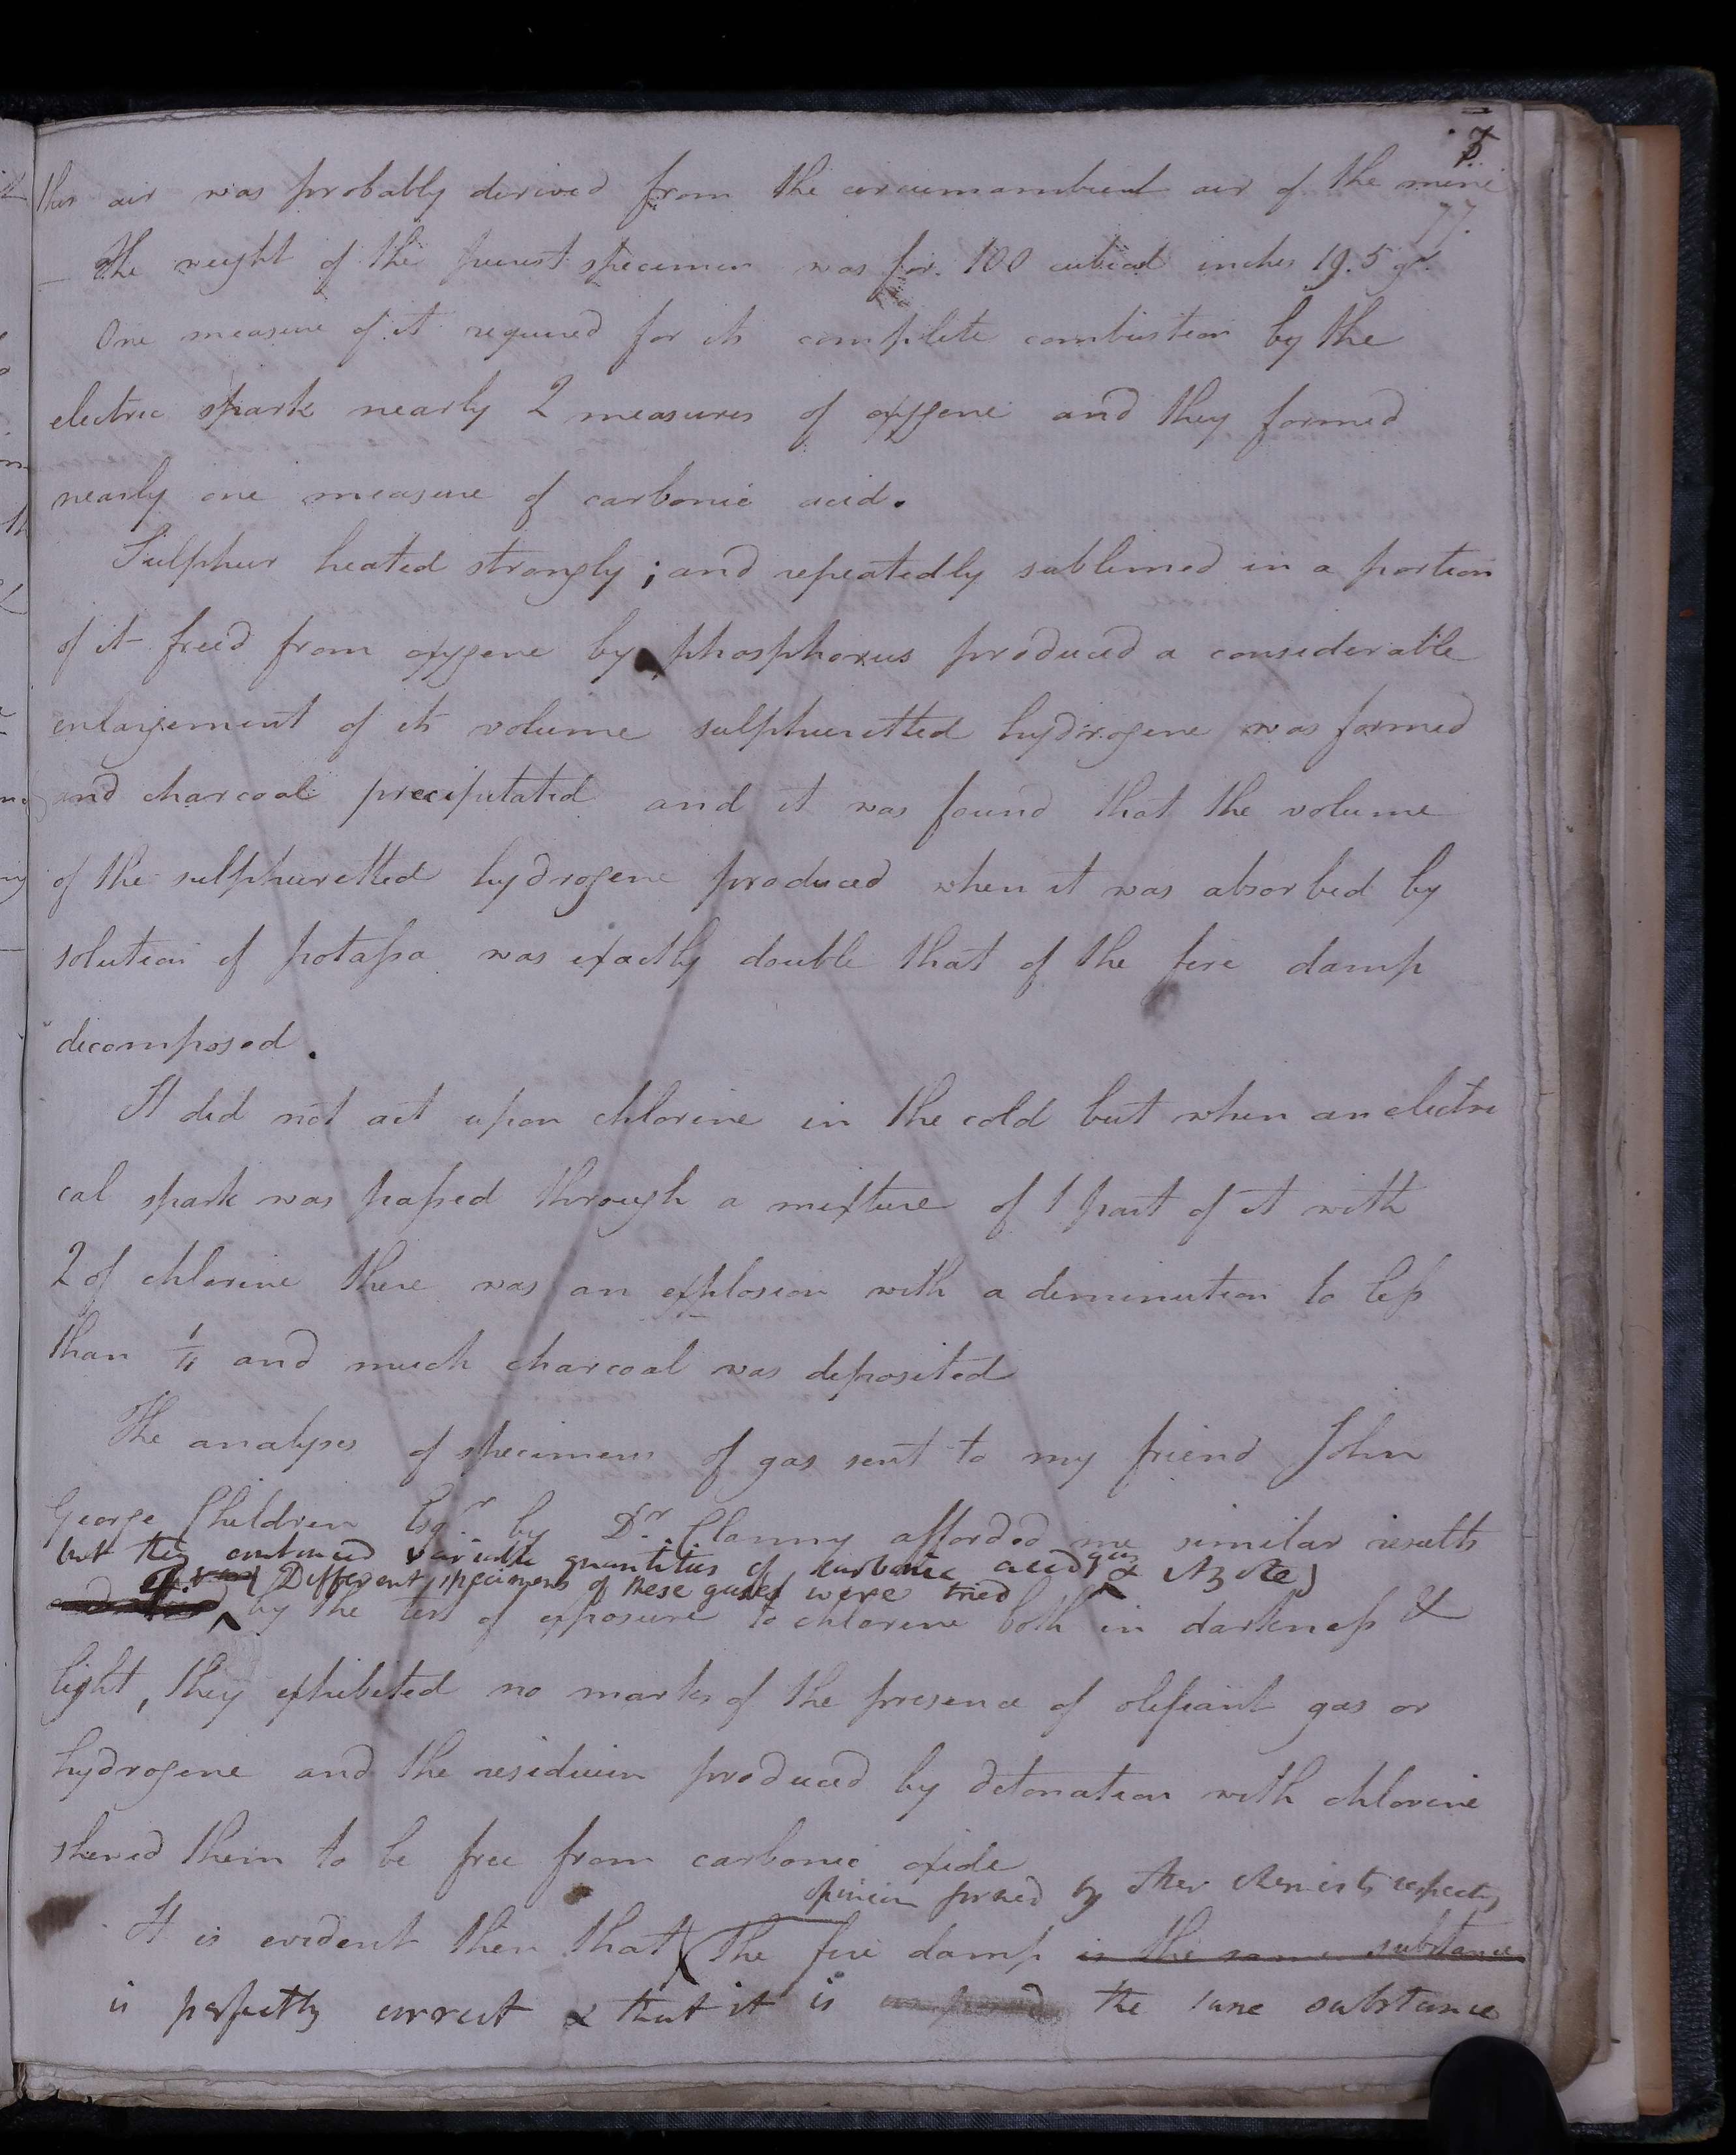 7
this air was probably derived from the circumambient air of the mine
77.
— The weight of the purest specimen was for 100 cubical inches 19.5 gr.
One measure of it required for its complete combustion by the
electric spark nearly 2 measures of oxygene and they formed
nearly one measure of carbonic acid.
Sulphur heated strongly; and repeatedly sublimed in a portion
of it freed from oxygene by phosphorus produced a considerable
enlargement of its volume sulphuretted hydrogene was formed
and charcoal precipitated and it was found that the volume
of the sulphuretted hydrogene produced when it was absorbed by
solution of potassa was exactly double that of the fire damp
decomposed.
It did not act upon chlorine in the cold but when an electri
cal spark was passed through a mixture of 1 part of it with
2 of chlorine there was an explosion with a diminution to less
than 1/4 and much charcoal was deposited
The analyses of specimens of gas sent to my friend John
George Children Esqr. by Dr. Clanny afforded me similar results
but they contained variable quantities of carbonic acid gas & Azote
Different specimens of these gases were tried
by the test of exposure to chlorine both in darkness &
light, they exhibited no marks of the presence of olefiant gas or
hydrogene and the residuum produced by detonation with chlorine
shewed them to be free from carbonic oxide
opinion formed by other chemists respecting
It is evident then that the fire damp is the same substance
is perfectly correct & that it is the same substance